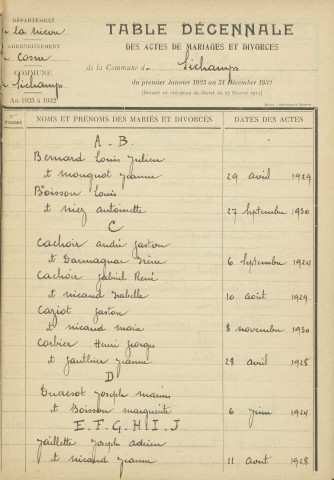 DÉPARTEMENT
de la Nièvre
ARRONDISSEMENT
de Cosne
COMMUNE
de Sichamps
Du 1923 à 1932
TABLE DÉCENNALE
DES ACTES DE MARIAGES ET DIVORCES
de la Commune de Sichamps
du premier Janvier 1923 au 31 Décembre 1932
(Dressée en exécution du décret du
NOMS ET PRÉNOMS DES MARIÉS ET DIVORCÉS DATES DES ACTES
A - B
Bernard Louis Julien
et Jeanne 29 avril 1929
Boisson Louis
et Niez Antoinette 27 Septembre 1930
C
Cachoir André Gaston
et Darmagnac Irène 6 Septembre 1924
Cachoir Gabriel René
et Micaud Isabelle 10 août 1929
Caziot Gaston
et Micaud Marie 8 novembre 1930
Corbier Henri Georges
et Gaulthier Jeanne 28 avril 1928
D
Joseph
et Boisson Marguerite 6 Juin 1924
E.F.G.H.I.J
Jaillette Joseph Adrien
et Micaud Jeanne 11 août 1928